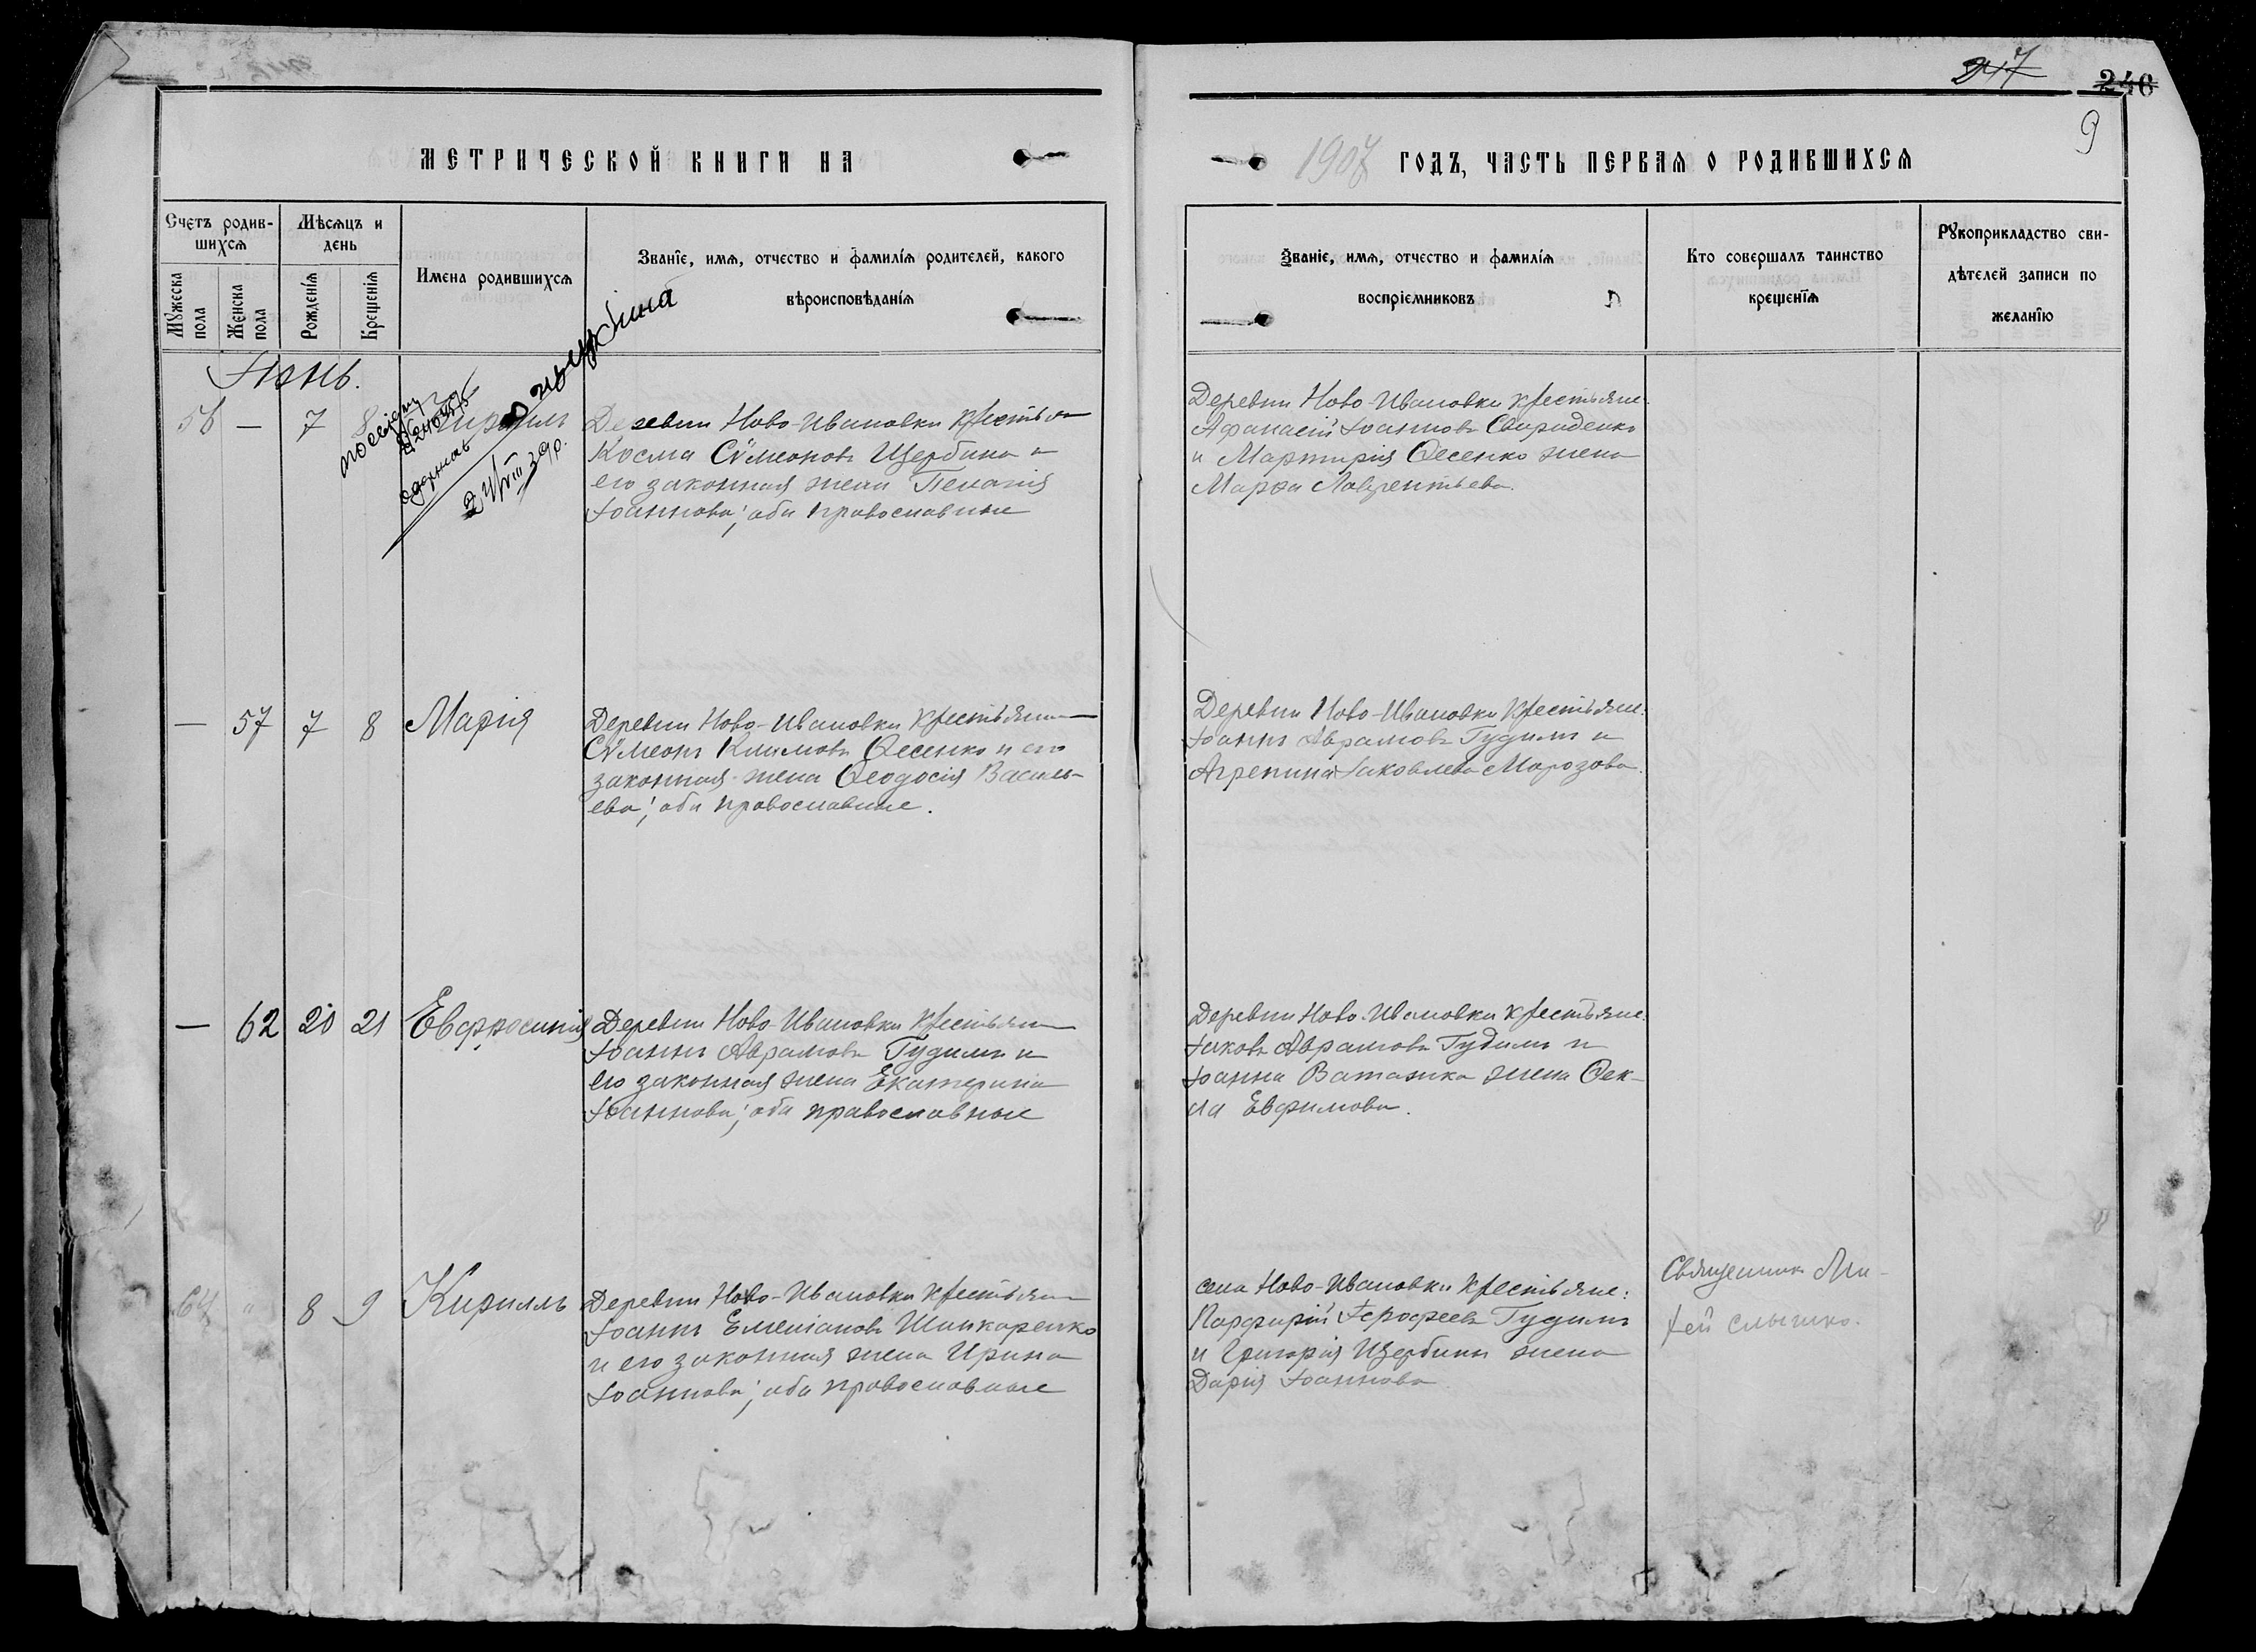 217
246
9
МЕТРИЧЕСКОЙ КНИГИ НА
1907 ГОДЪ, ЧАСТЬ ПЕРВАЯ О РОДИВШИХСЯ
Счетъ родив-
шихся
Мужеска
пола
Женска
пола
Мѣсяцъ и
день
Рожденїя
Крещенїя
Имена родившихся
Званїе, имя, отчество и фамилїя родителей, какого
вѣроисповѣданїя
Званїе, имя, отчество и фамилїя
воспрїемниковъ
Кто совершалъ таинство
крещенїя
Рукоприкладство сви-
дѣтелей записи по
желанїю
Іюнь.
56 — 7 8 Кириллъ
одержав
Щербина
24/VIII 39р.
Деревни Ново-Ивановки крестьян
Косма Сѵмеоновъ Щербина и
его законная жена Пелагія
Іоаннова; оба православные
Деревни Ново-Ивановки крестьяне:
Афанасій Іоанновъ Свириденко
и Мартирія Ѳесенко жена
Марѳа Лаврентьева.
— 57 7 8 Марія
Деревни Ново-Ивановки крестьянин
Сѵмеонъ Климовъ Ѳесенко и его
законная жена Ѳеодосія Василь-
ева; оба православные.
Деревни Ново-Ивановки крестьяне:
Іоаннъ Аврамовъ Гудимъ и
Агрепина Іаковлева Морозова.
— 62 20 21 Евфросинія
Деревни Ново-Ивановки крестьянин
Іоаннъ Аврамовъ Гудимъ и
его законная жена Екатерина
Іоаннова; оба православные
Деревни Ново-Ивановки крестьяне:
Іаковъ Аврамовъ Гудимъ и
Іоанна Ватажка жена Ѳек-
ла Евфимова.
64 " 8 9 Кириллъ
Деревни Ново-Ивановки крестьянин
Іоаннъ Емеліановъ Шинкаренко
и его законная жена Ирина
Іоаннова; оба православные
села Ново-Ивановки крестьяне:
Порфирій Іерофеевъ Гудимъ
и Григорія Щербины жена
Дарія Іоаннова
Священникъ